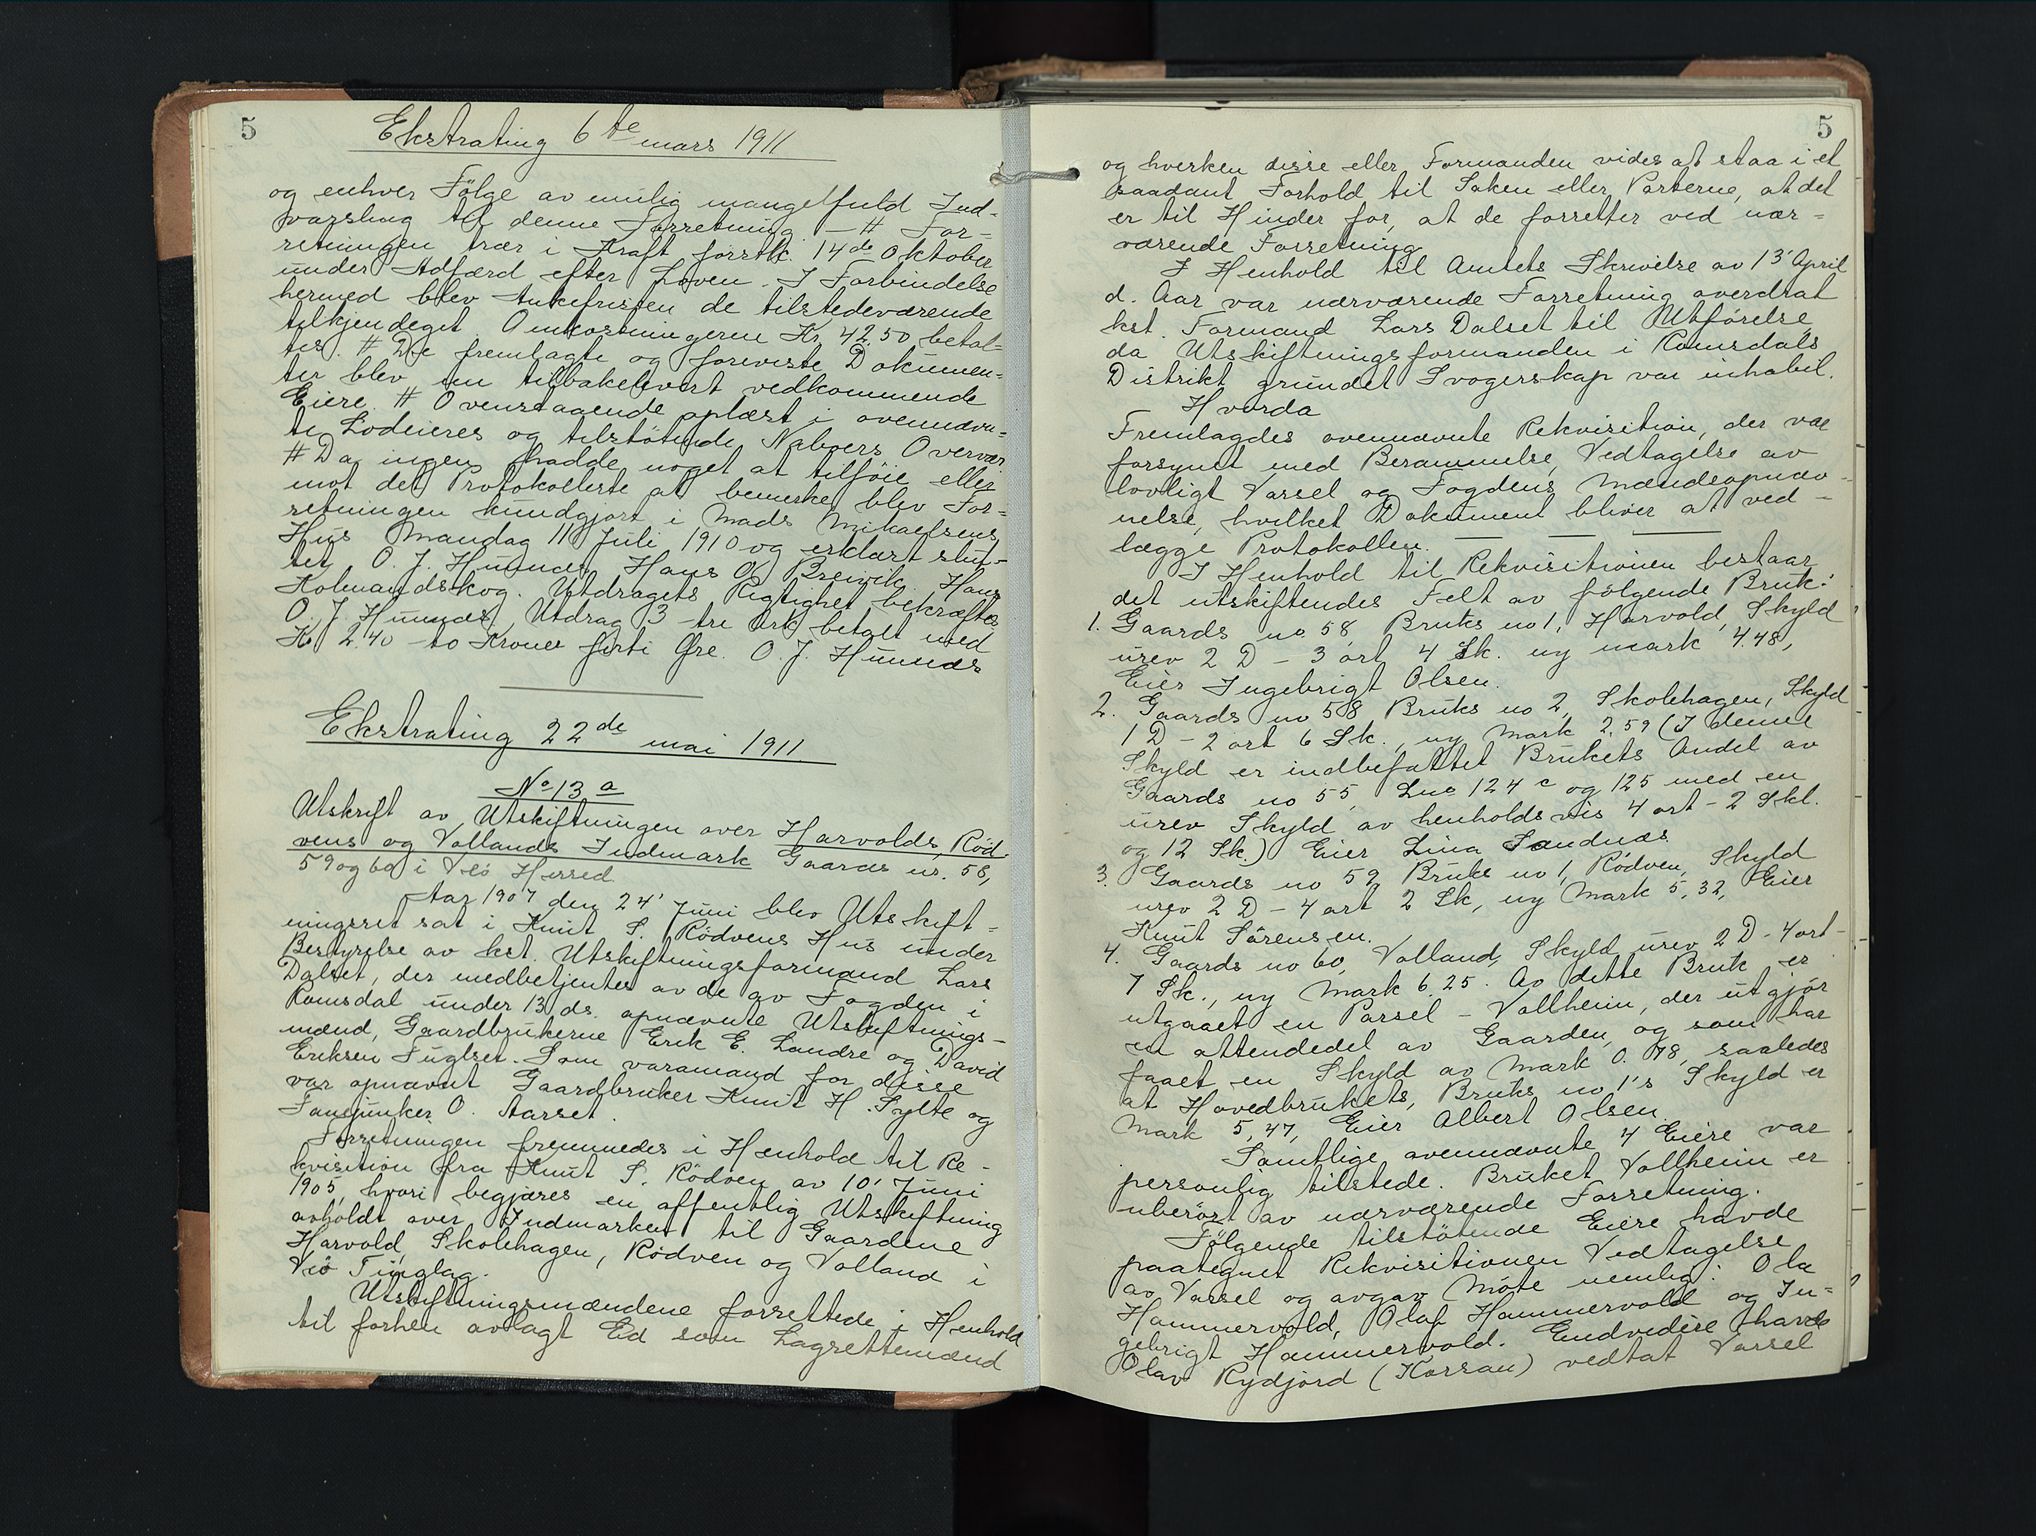 5
Ekstrating 6te mars 1911
og enhver Følge av mulig mangelfuld Ind-
varsling til denne Forretning. — # For-
retningen trær i Kraft førstk. 14de Oktober
under Adfærd efter Loven. I Forbindelse
hermed blev Ankefristen de tilstedeværende
tilkjendeget. Omkostningerne Kr. 42,50 betal-
tes. # De fremlagte og foreviste Dokumen-
ter blev nu tilbakelevert vedkommende
Eiere. # Ovenstaaende oplæst i ovennævn-
te Lodeieres og tilstøtende Naboers Overvær
# Da ingen hadde noget at tilføie eller
mot det Protokollerte at bemerke blev For-
retningen kundgjort i Mads Mikaelsens
Hus Mandag 11 Juli 1910 og erklært slut-
tet. O. J. Hunnes, Hans O. Breivik Hans
Kolmandskog. Utdragets Rigtighet bekræftes
O. J. Hunnes. Utdrag 3 - tre Ark betalt med
Kr 2.40 - to Kroner firti Øre. O. J. Hunnes
Ekstrating 22de mai 1911.
No 13 a
Utskrift av Utskiftningen over Harvolds, Rød-
vens og Vollands Indmark Gaards nr. 58,
59 og 60 i Veø Herred.
Aar 1907 den 24' Juni blev Utskift-
ningsret sat i Knut S. Rødvens Hus under
Bestyrelse av kst. Utskiftningsformand Lars
Dalset, der medbetjentes av de av Fogden i
Romsdal under 13 ds. opnævnte Utskiftnings-
mænd, Gaardbrukerne Erik E. Landre og David
Eriksen Fuglset. Som varamand for disse
var opnævnt Gaardbruker Knut H. Sylte og
Fanejunker O. Aarset.
Forretningen fremmedes i Henhold til Re-
kvisition fra Knut S. Rødven av 10' Juni
1905, hvori begjæres en offentlig Utskiftning
avholdt over Indmarken til Gaardene
Harvold, Skolehagen, Rødven og Volland i
Veø Tinglag.
Utskiftningsmændene forrettede i Henhold
til forhen avlagt Ed som Lagrettemænd
5
og hverken disse eller Formanden vides at staa i et
saadant Forhold til Saken eller Parterne, at det
er til Hinder for, at de forretter ved nær-
værende Forretning.
I Henhold til Amtets Skrivelse av 13' April
d. Aar var nærværende Forretning overdrat
kst. Formand Lars Dalset til Utførelse,
da Utskiftningsformanden i Romsdals
Distrikt grundet Svogerskap var inhabil.
Hvorda
Fremlagdes ovennævnte Rekvisition, der var
forsynet med Berammelse, Vedtagelse av
lovligt Varsel og Fogdens Mændsopnæv-
nelse, hvilket Dokument bliver at ved-
lægge Protokollen.
I Henhold til Rekvisitionen bestaar
det utskiftendes Felt av følgende Bruk:
1. Gaards no 58 Bruks no 1, Harvold, Skyld
urev 2 D - 3 ort 4 Sk. ny mark 4.48,
Eier Ingebrigt Olsen.
2. Gaards no 58 Bruks no 2, Skolehagen, Skyld
1 D - 2 ort 6 Sk., ny Mark 2.59 (I denne
Skyld er indbefattet Brukets Andel av
Gaards no 55, Lno 124 c og 125 med en
urev Skyld av henholdsvis 4 ort - 2 Skl.
og 12 Sk.) Eier Lina Sandnæs
3. Gaards no 59 Bruks no 1, Rødven, Skyld
urev 2 D - 4 ort 2 Sk, ny Mark 5,32, Eier
Knut Sørensen.
4. Gaards no 60, Volland, Skyld urev 2 D - 4 ort -
7 Sk., ny Mark 6.25. Av dette Bruk er
utgaaet en Parsel - Vollheim, der utgjør
en attendedel av Gaarden, og som har
faaet en Skyld av Mark 0.78, saaledes
at Hovedbrukets, Bruks no 1's Skyld er
Mark 5,47, Eier Albert Olsen.
Samtlige ovennævnte 4 Eiere var
personlig tilstede. Bruket Vollheim er
uberørt av nærværende Forretning.
Følgende tilstøtende Eiere havde
paategnet Rekvisitionen Vedtagelse
av Varsel og avgav Møte nemlig: Ola
Hammervold, Olaf Hammervold og In-
gebrigt Hammervold. Endvidere havde
Olav Rydjord (Korsan) vedtat Varsel